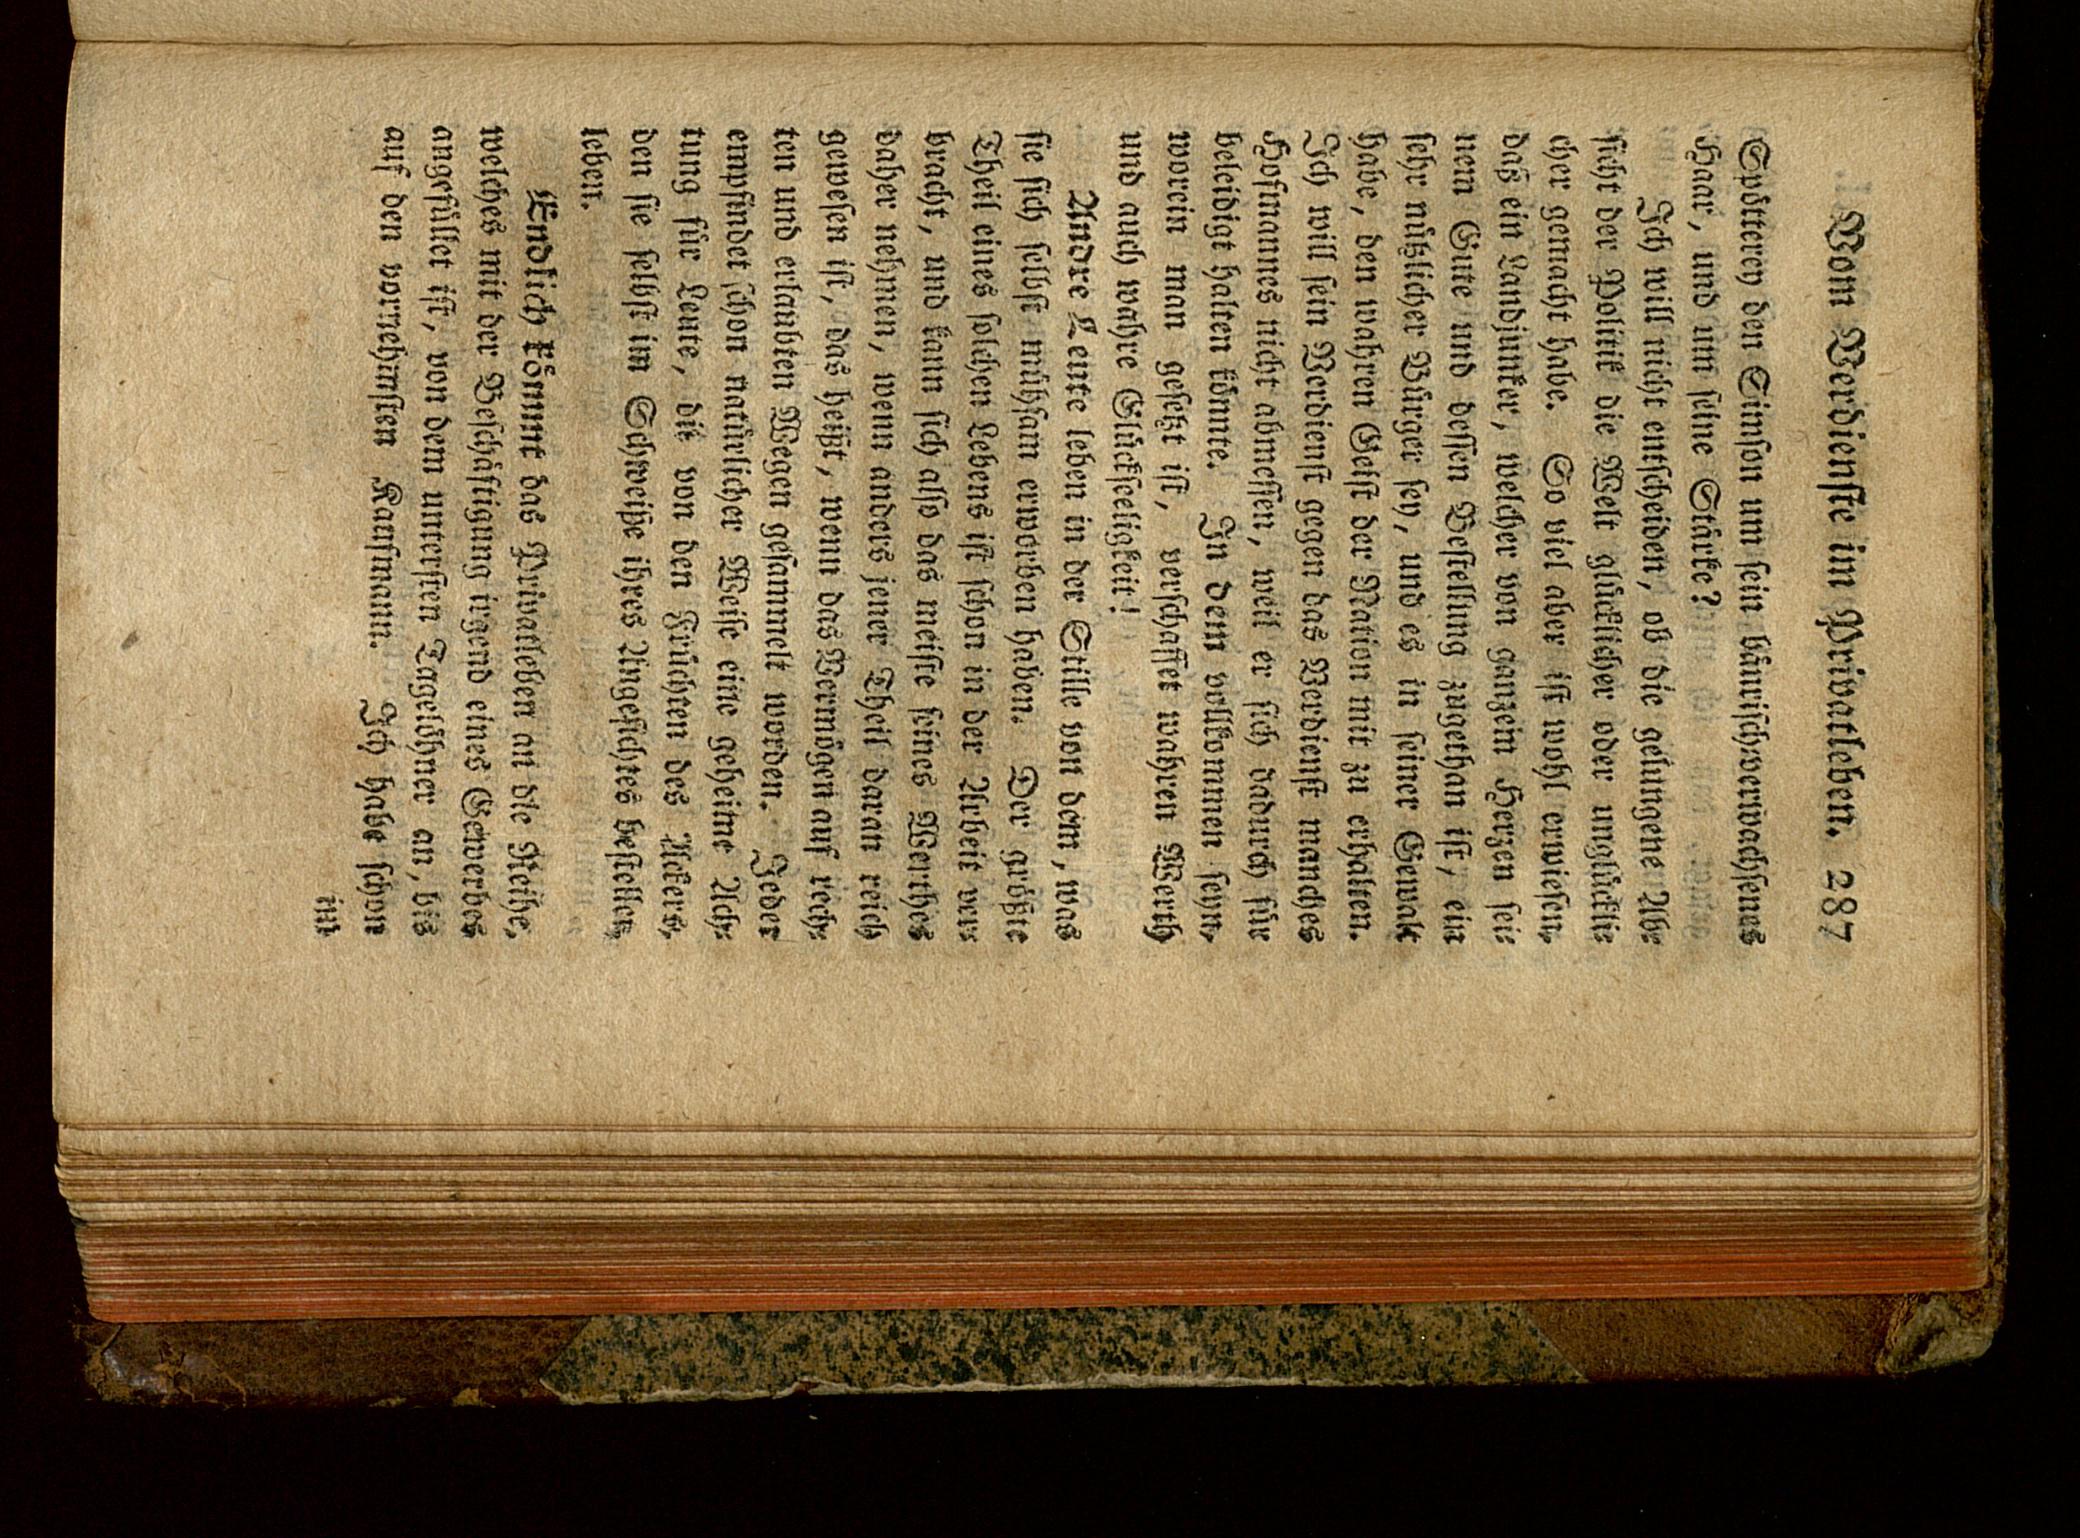 Vom Verdienſte im Privatleben. 287
Spötterey den Simſon um ſein bäuriſch-verwachſenes
Haar, und um ſeine Stärke?
Ich will nicht entſcheiden, ob die gelungene Ab-
ſicht der Politik die Welt glücklicher oder unglückli-
cher gemacht habe. So viel aber iſt wohl erwieſen,
daß ein Landjunker, welcher von ganzem Herzen ſei-
nem Gute und deſſen Beſtellung zugethan iſt, ein
ſehr nützlicher Bürger ſey, und es in ſeiner Gewalt
habe, den wahren Geiſt der Nation mit zu erhalten.
Ich will ſein Verdienſt gegen das Verdienſt manches
Hofmannes nicht abmeſſen, weil er ſich dadurch für
beleidigt halten könnte. In dem vollkommen ſeyn,
worein man geſetzt iſt, verſchaffet wahren Werth
und auch wahre Glückſeligkeit!
Andre Leute leben in der Stille von dem, was
ſie ſich ſelbſt mühſam erworben haben. Der größte
Theil eines ſolchen Lebens iſt ſchon in der Arbeit ver-
bracht, und kann ſich alſo das meiſte ſeines Werthes
daher nehmen, wenn anders jener Theil daran reich
geweſen iſt, das heißt, wenn das Vermögen auf rech-
ten und erlaubten Wegen geſammelt worden. Jeder
empfindet ſchon natürlicher Weiſe eine geheime Ach-
tung für Leute, die von den Früchten des Ackers,
den ſie ſelbſt im Schweiße ihres Angeſichtes beſtellen,
leben.
Endlich kömmt das Privatleben an die Reihe,
welches mit der Beſchäftigung irgend eines Gewerbes
angefüllet iſt, von dem unterſten Tagelöhner an, bis
auf den vornehmſten Kaufmann. Ich habe ſchon
im